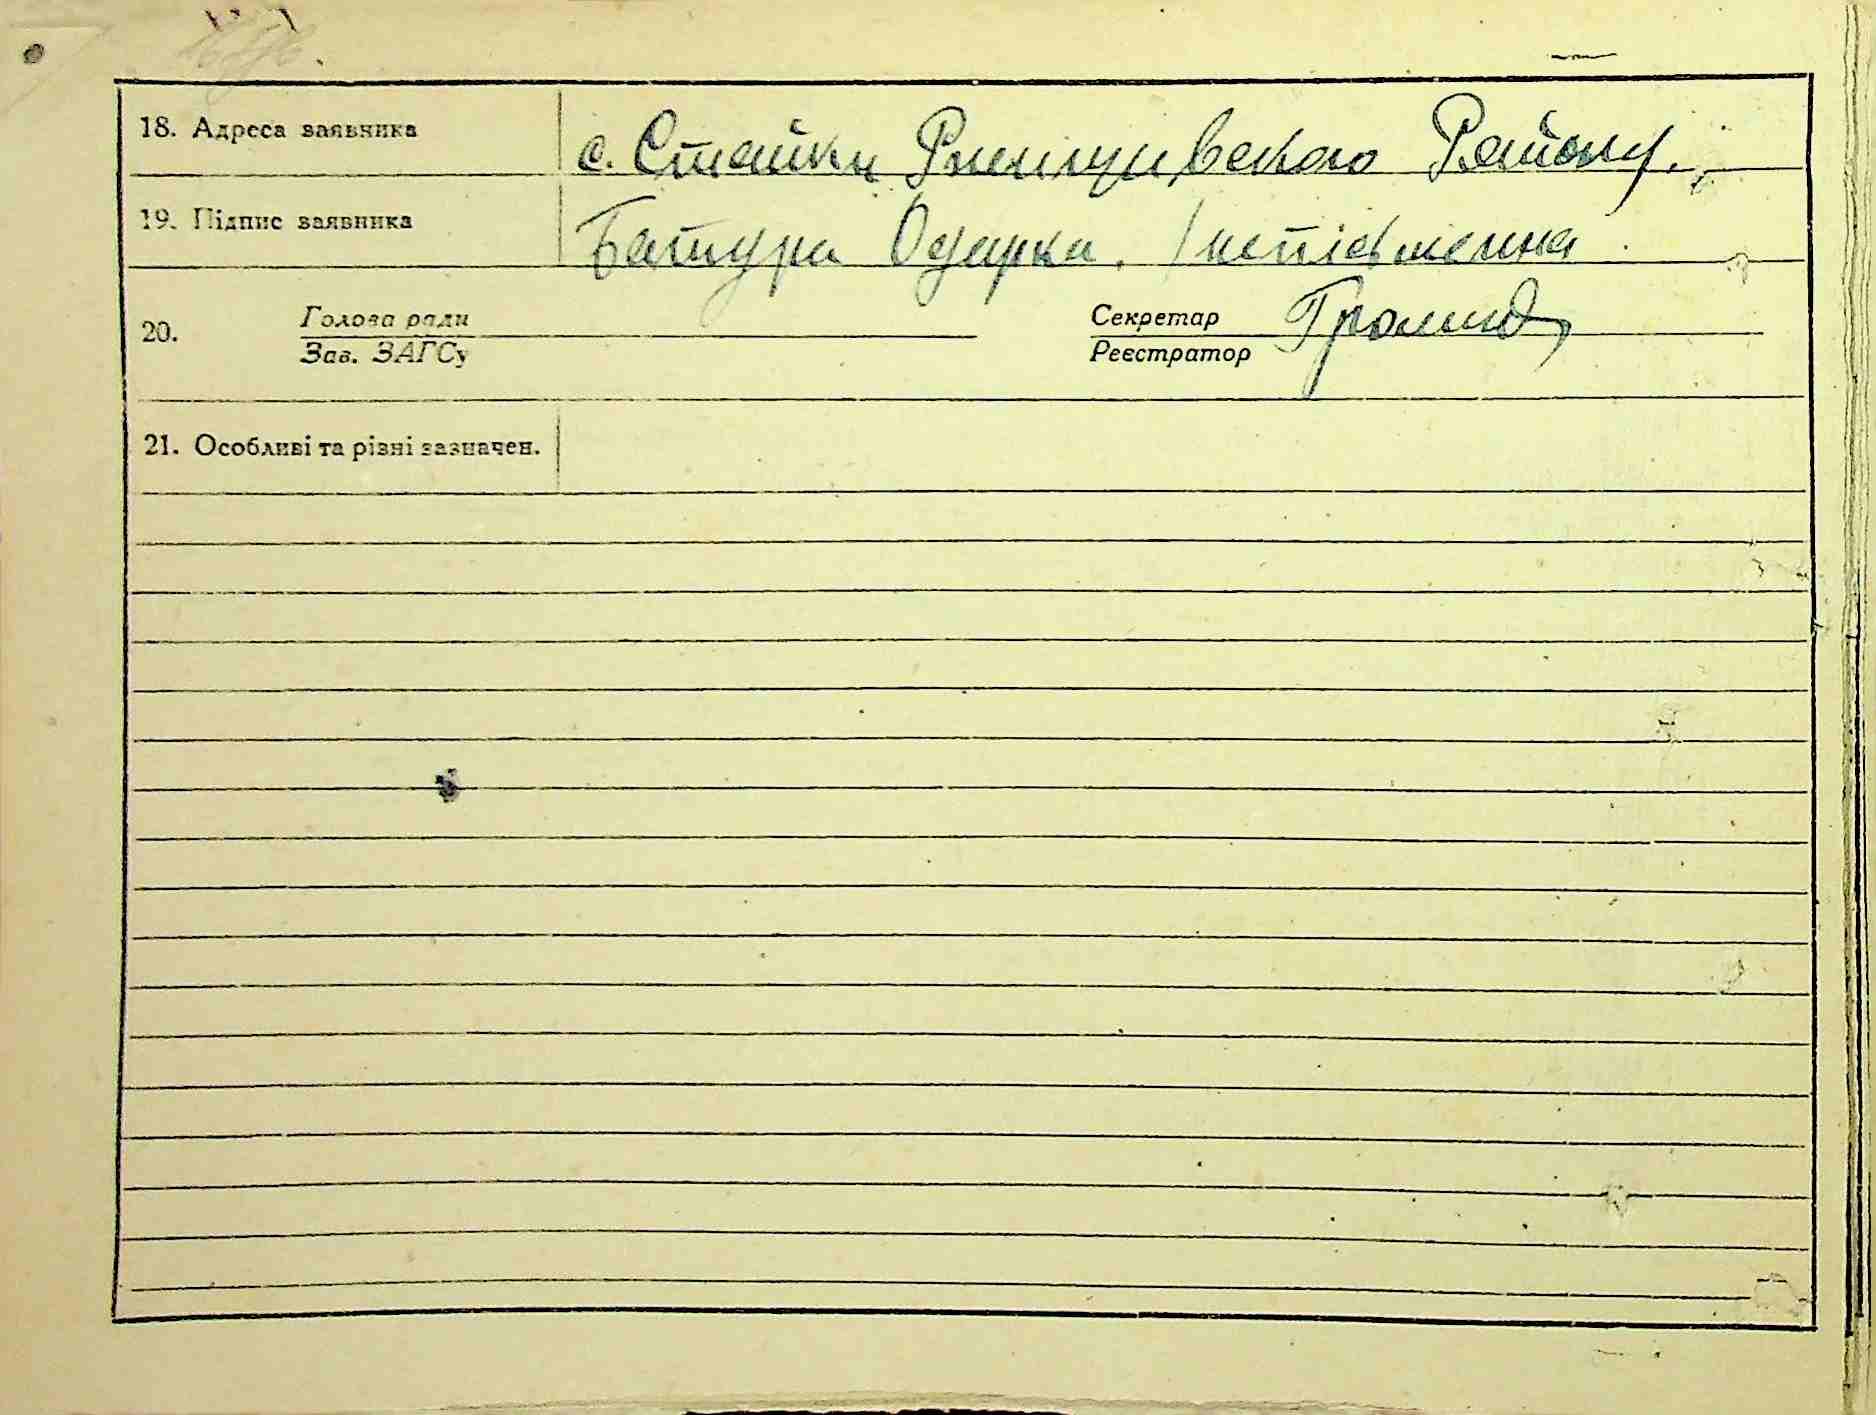 18. Адреса заявника с. Стайки Ржищівського Району.
19. Підпис заявника Батура Одарка. /непісьменна
20. Голова ради Секретар
Зав. ЗАГСу Реєстратор
21. Особливі та різні зазначен.